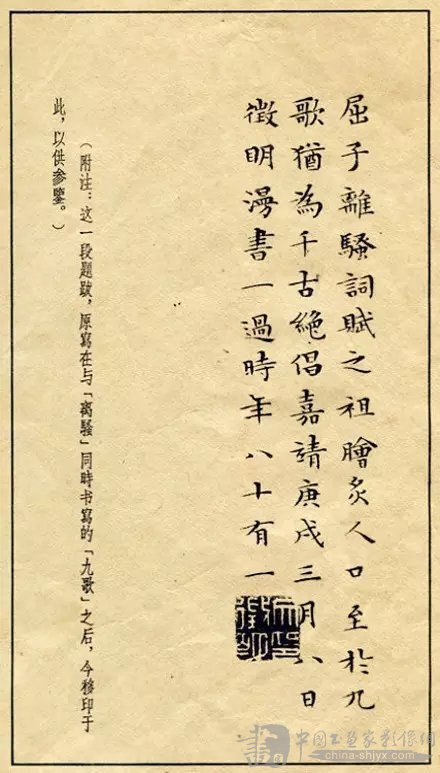 屈子離騷詞賦之祖膾炙人口至於九
歌猶為千古絶倡嘉靖庚戌三月八日
徵明漫書一過時年八十有一
（附注：这一段題跋，原寫在与「离騷」同時书寫的「九歌」之后，今移印于
此，以供参鑒。）
畫
中国书画家影像网
china-shjyx.com